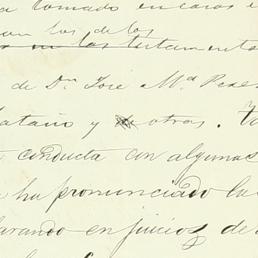 a tomado en casos e
con los de los
en los testamento
de Dn José Ma Pere
Cataño y otros. Y
conducta con algunas
ha pronunciado la
larando en juicios de